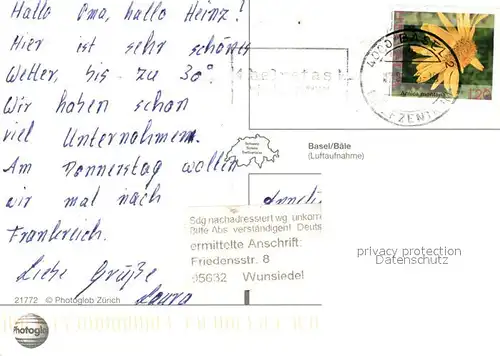 Hallo Oma, hallo Heinz!
Hier ist sehr schönes
Wetter, bis zu 30°.
Wir haben schon
viel Unternehmen.
Am Donnerstag wollen
wir mal nach
Frankreich.
Liebe Grüße
Laura
21772 © Photoglob Zürich
Photoglob
4000 BASEL 2
Arnica montana
Schweiz
Suisse
Svizzera
Basel/Bâle
(Luftaufnahme)
Sdg nachadressiert wg. unkorr
Bitte Abs verständigen! Deuts
ermittelte Anschrift:
Friedensstr. 8
95632 Wunsiedel
privacy protection
Datenschutz